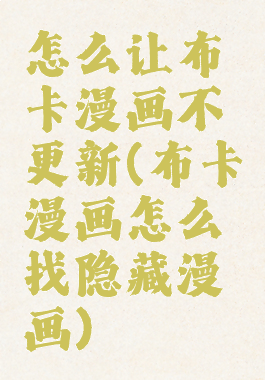 怎么让布
卡漫画不
更新(布卡
漫画怎么
找隐藏漫
画)